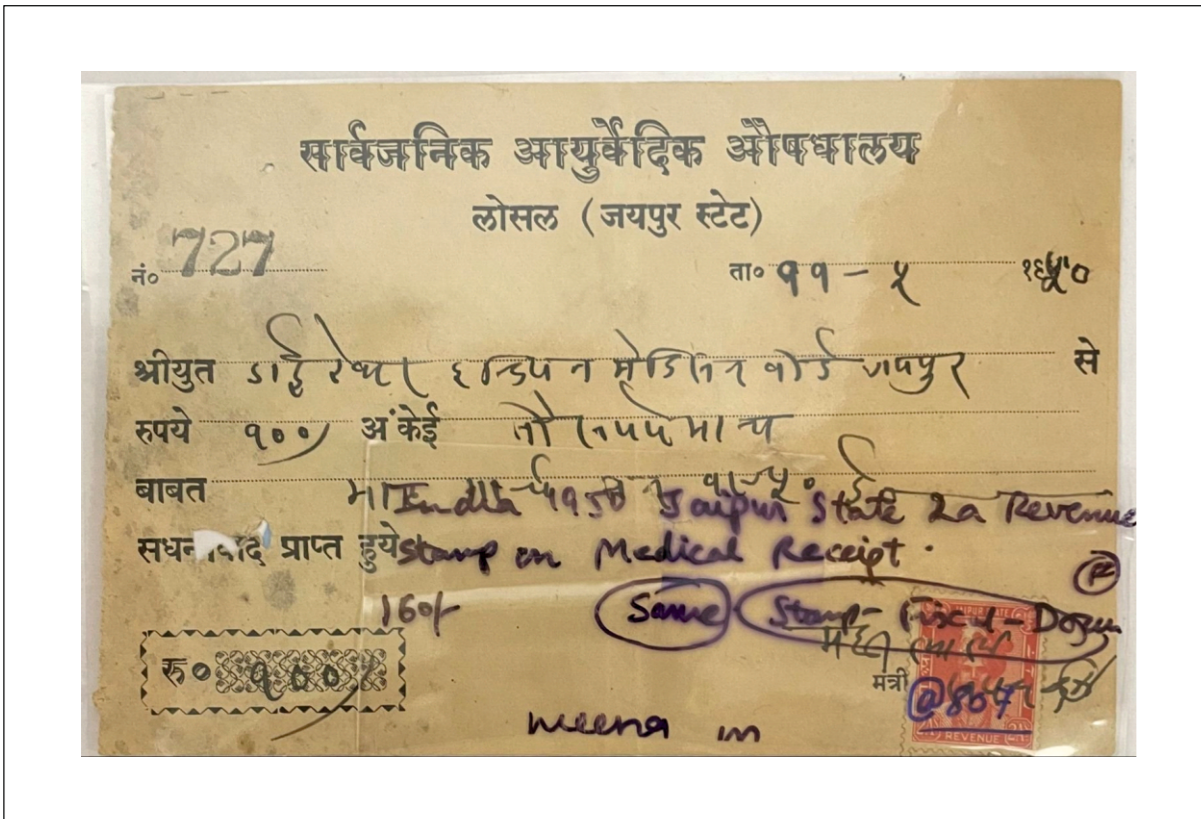 सार्वजनिक आयुर्वेदिक औषधालय
लोसल (जयपुर स्टेट)
नं० 727
ता० ११-५ १९५०
श्रीयुत डाईरेक्टर इन्डियन मेडिसिन बोर्ड जयपुर से
रुपये १००) अंकेई सौ रुपये मात्र
बाबत
India 1950 Jaipur State 2a Revenue
सधन्यवाद प्राप्त हुये Stamp on Medical Receipt.
160/- Same Stamp-Fiscal-Dozen
JAIPUR STATE
मंत्री
@807
रु० १००)
REVENUE